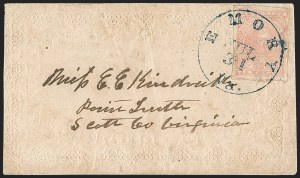 EMORY Va.
JUL
31
Miss E. E.
Point Truth
Scott Co Virginia